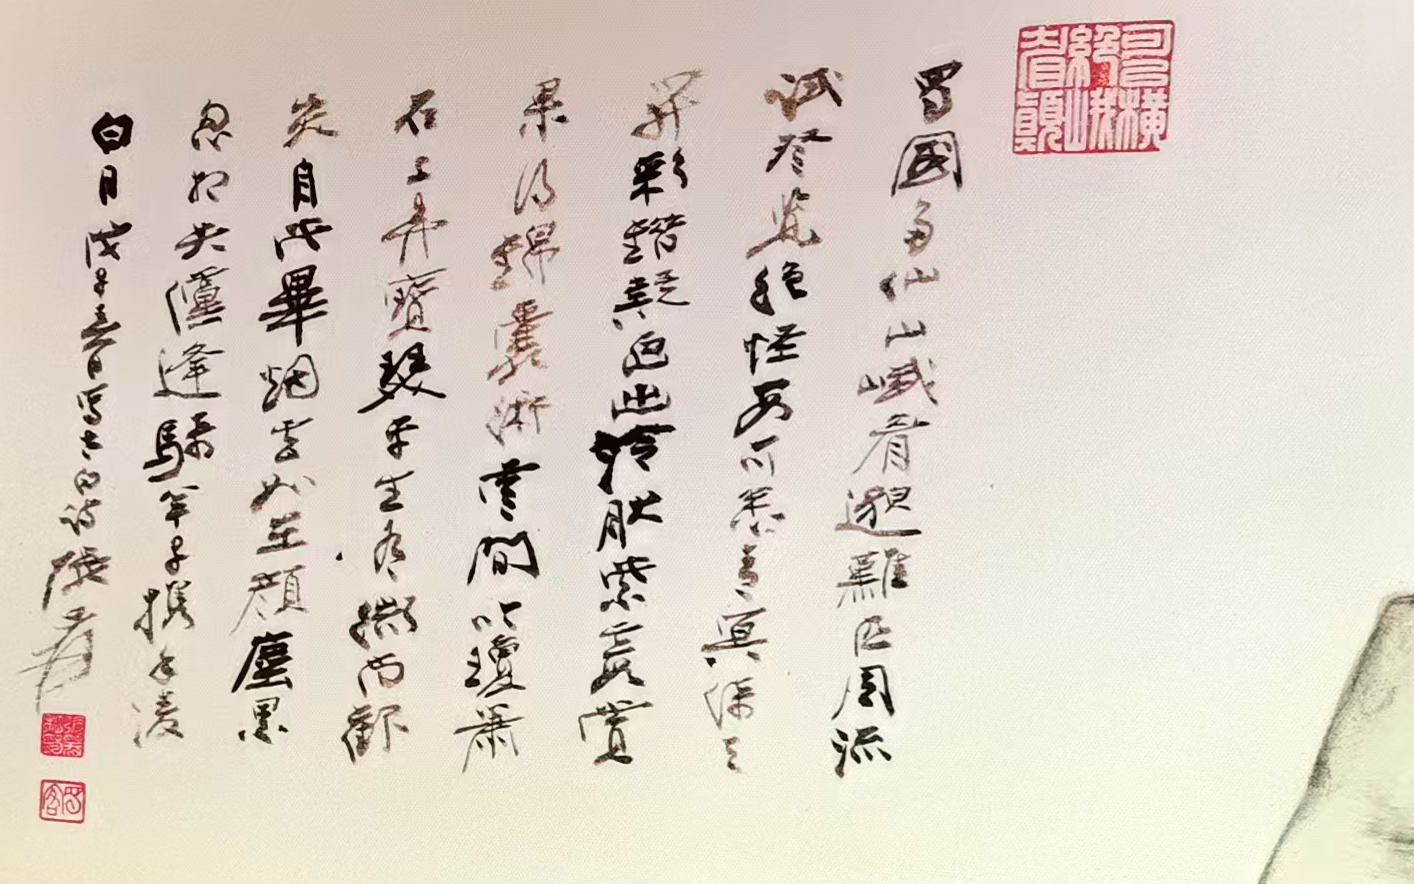 可以橫絕峨眉顛
蜀國多仙山峨眉邈難匹周流
試登覽絕怪安可悉青冥倚天
開彩錯疑畫出泠然紫霞賞
果得錦囊術雲間吟瓊簫
石上弄寶瑟平生有微尚歡
笑自此畢烟容如在顏塵累
忽相失儻逢騎羊子攜手凌
白日戊子春日寫太白詩張爰